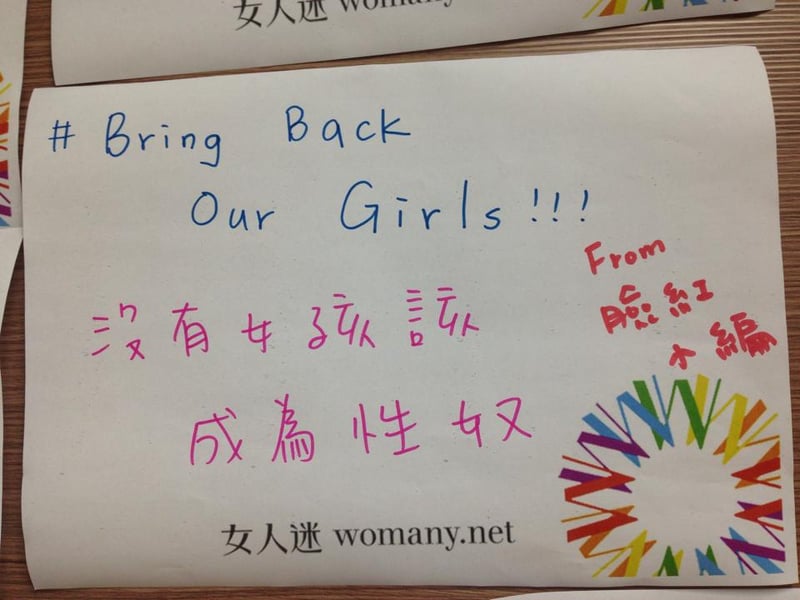 女人迷 womany.net
# Bring Back
Our Girls!!!
沒有女孩該
成為性奴
From
臉紅
小編
女人迷 womany.net